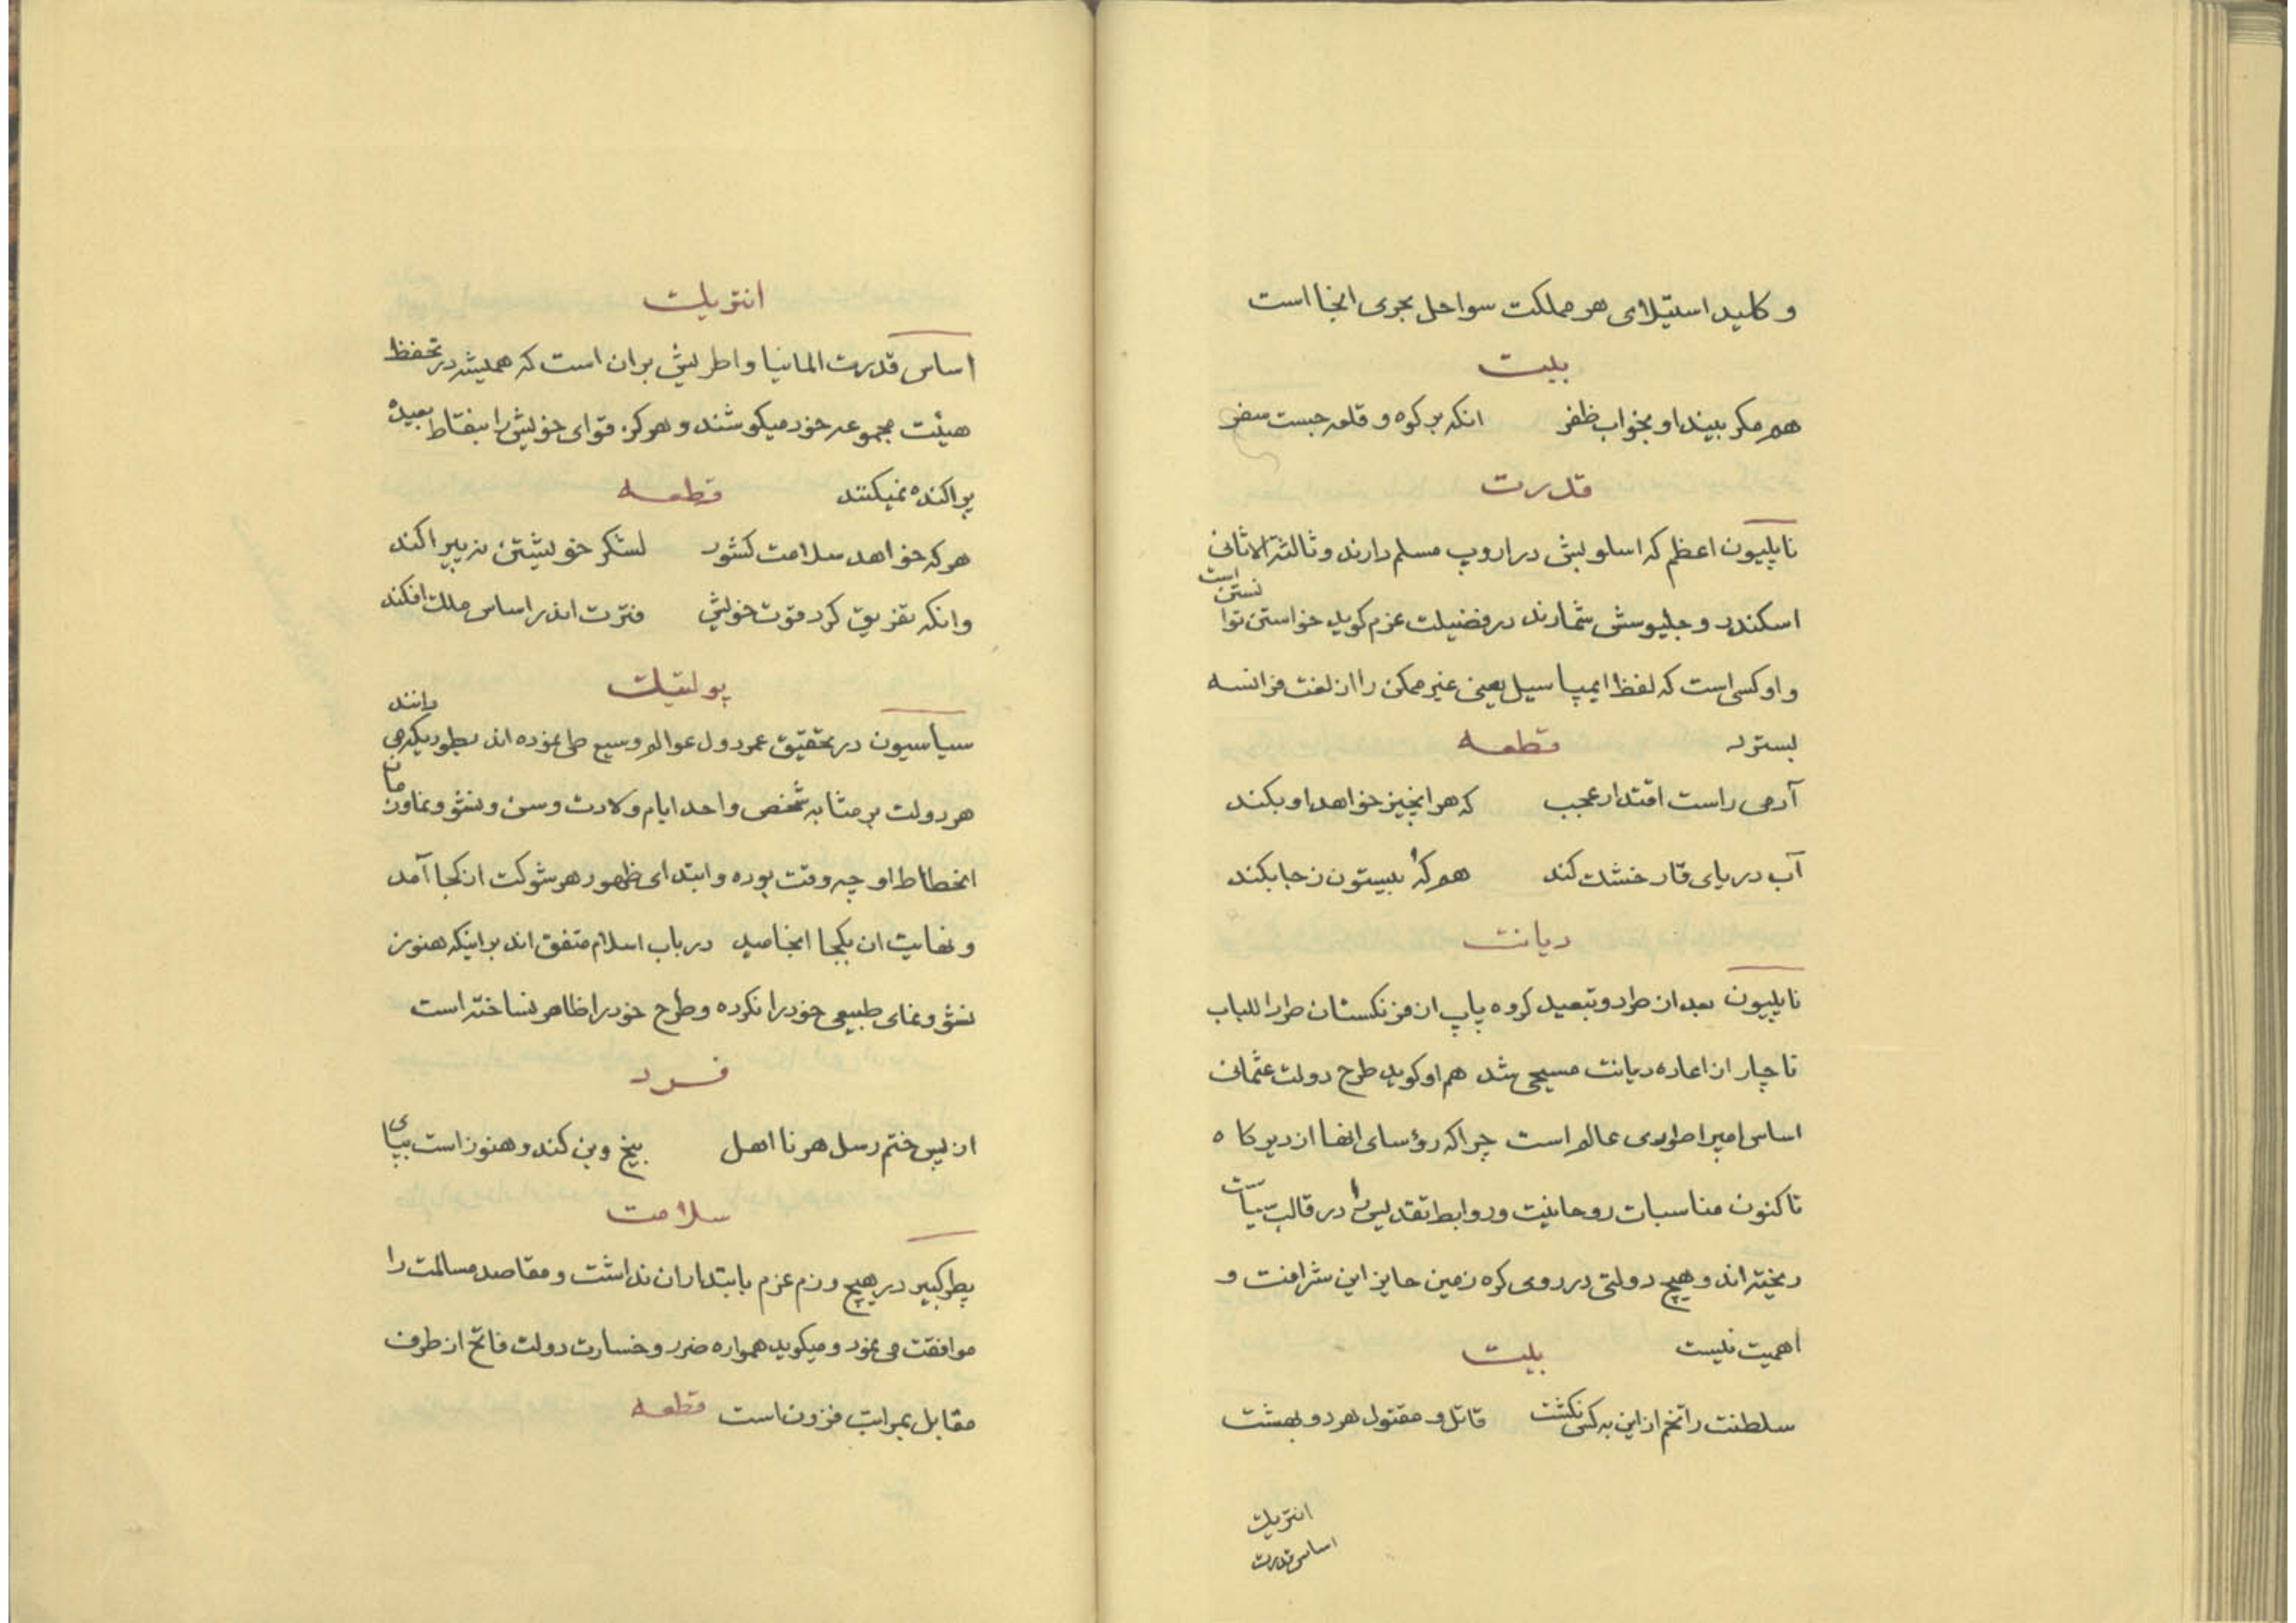 و کلید استیلای هر مملکت سواحل بحری انجا است
بیت
هم مکر بیند او بخواب ظفر انکه بر کوه و قلعه جست سفر
قدرت
ناپلیون اعظم که اسلوبش در اروپ مسلم دارند و ثالثة الاثانی
اسکندر و جلیوسش شمارند در فضیلت عزم کوید خواستن توانستن است
و او کسی است که لفظ ایمپاسیل یعنی غیر ممکن را از لغت فرانسه
بسترد قطعه
آدمی راست اقتدار عجب که هر انچیز خواهد او بکند
آب دریای قار خشک کند هم که بیستون ز جا بکند
دیانت
ناپلیون بعد از طرد و تبعید کروه پاپ از فرنکستان طرا للباب
ناچار از اعاده دیانت مسیحی شد هم او کوید طرح دولت عثمانی
اساس امپراطوری عالم است چرا که رؤسای انها از دیر کاه
تا کنون مناسبات روحانیت و روابط تقدیس را در قالب سیاست
ریخته اند و هیچ دولتی در روی کره زمین حایز این شرافت و
اهمیت نیست بیت
سلطنت را تخم از این به کس نکشت قاتل و مقتول هر دو بهشت
انتریک
اساس قدرت
انتریک
اساس قدرت المانیا و اطریش بران است که همیشه در تحفظ
هیئت مجموعه خود میکوشند و هرکز قوای خویش را بنقاط بعیده
پراکنده نمیکنند قطعه
هر که خواهد سلامت کشور لشکر خویشتن نپیراکند
وانکه تفریق کرد قوت خویش فترت اندر اساس ملک افکند
پولتیک
سیاسیون در تحقیق عمر دول عوالم وسیع طی نموده اند بطوریکه می دانند
هر دولت بر مثابه شخص واحد ایام ولادت و سن و نشو و نما و زمان
انحطاط او چه وقت بوده و ابتدای ظهور هر شوکت از کجا آمد
و نهایت ان بکجا انجامید در باب اسلام متفق اند بر اینکه هنوز
نشو و نمای طبیعی خود را نکرده و طرح خود را ظاهر نساخته است
فرد
از پس ختم رسل هر نا اهل بیخ و بن کند و هنوز است بپای
سلامت
پطر کبیر در هیچ رزم عزم بابتدار ان نداشت و مقاصد مسالمت را
موافقت می نمود و میکوید همواره ضرر و خسارت دولت فاتح از طرف
مقابل بمراتب فزون است قطعه